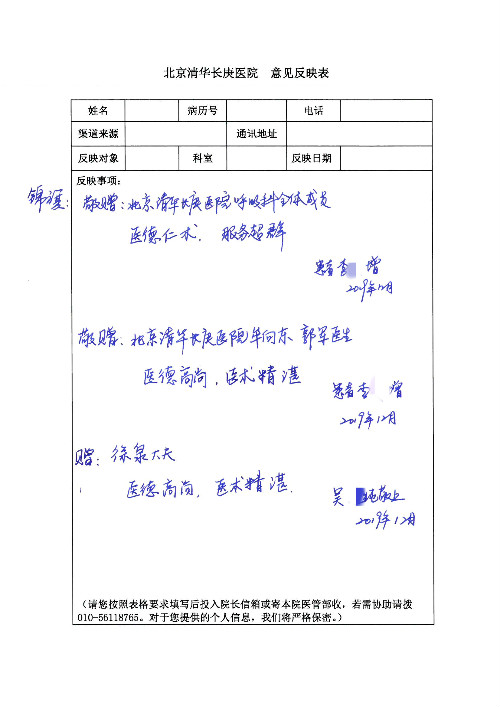 北京清华长庚医院 意见反映表
姓名 病历号 电话
渠道来源 通讯地址
反映对象 科室 反映日期
反映事项:
锦旗: 敬赠:北京清华长庚医院呼吸科全体成员
医德仁术, 服务超群
患者李 赠
2019年12月
敬赠:北京清华长庚医院牟向东 郭军医生
医德高尚,医术精湛
患者李 赠
2019年12月
赠:徐泉大夫
医德高尚, 医术精湛.
吴 敬上
2019年12月
(请您按照表格要求填写后投入院长信箱或寄本院医管部收,若需协助请拨
010-56118765。对于您提供的个人信息,我们将严格保密。)